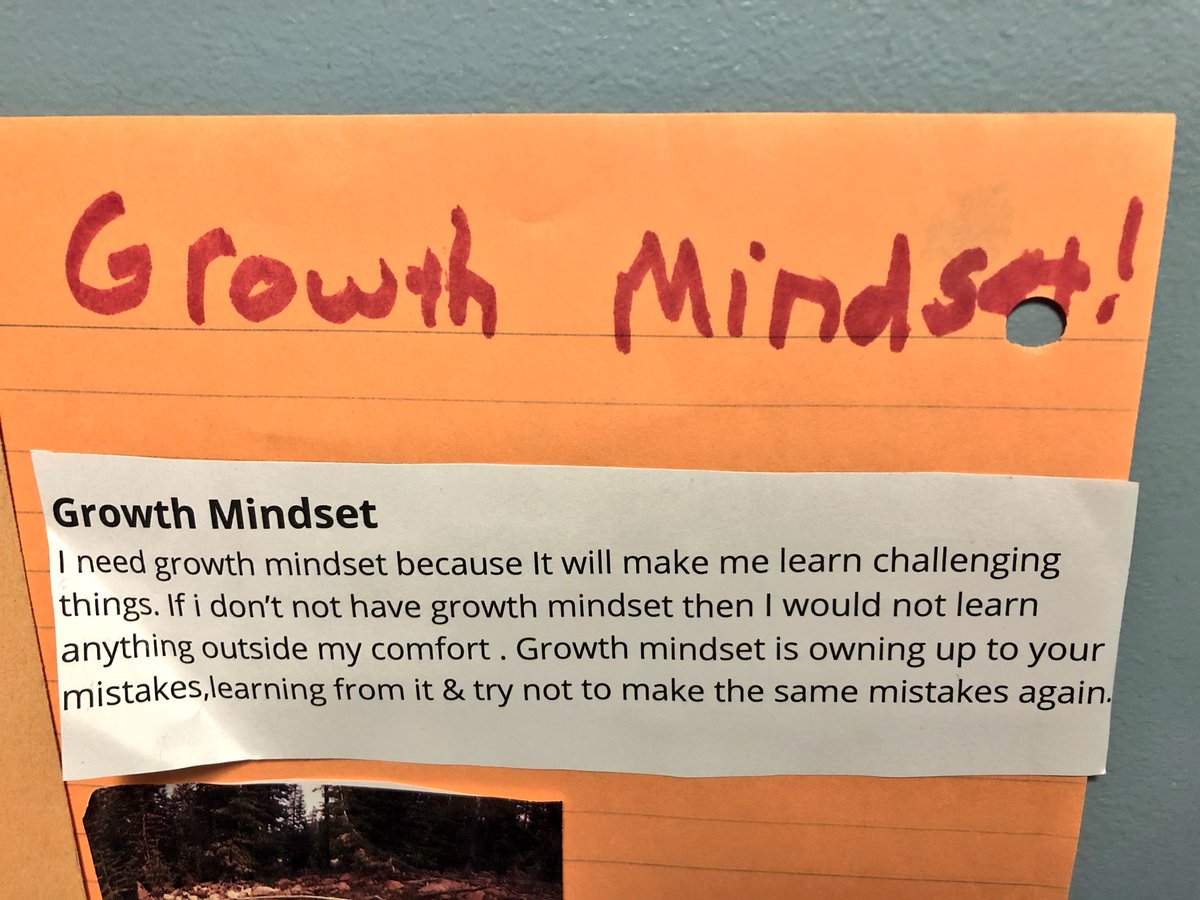 Growth Mindset!
Growth Mindset
I need growth mindset because It will make me learn challenging
things. If i don't not have growth mindset then I would not learn
anything outside my comfort . Growth mindset is owning up to your
mistakes,learning from it & try not to make the same mistakes again.